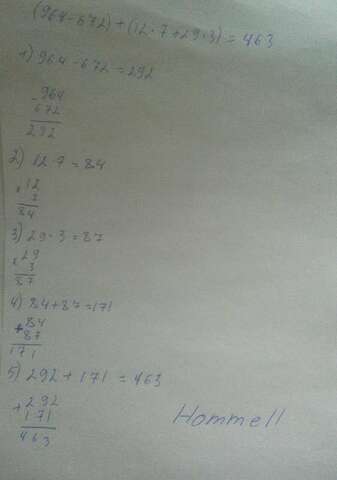 (964-672)+(12·7+29·3)=463
1) 964-672=292
- 964
672
292
2) 12·7=84
x 12
7
84
3) 29·3=87
x 29
3
87
4) 84+87=171
+ 84
87
171
5) 292+171=463
+ 292
171
463
Hommell